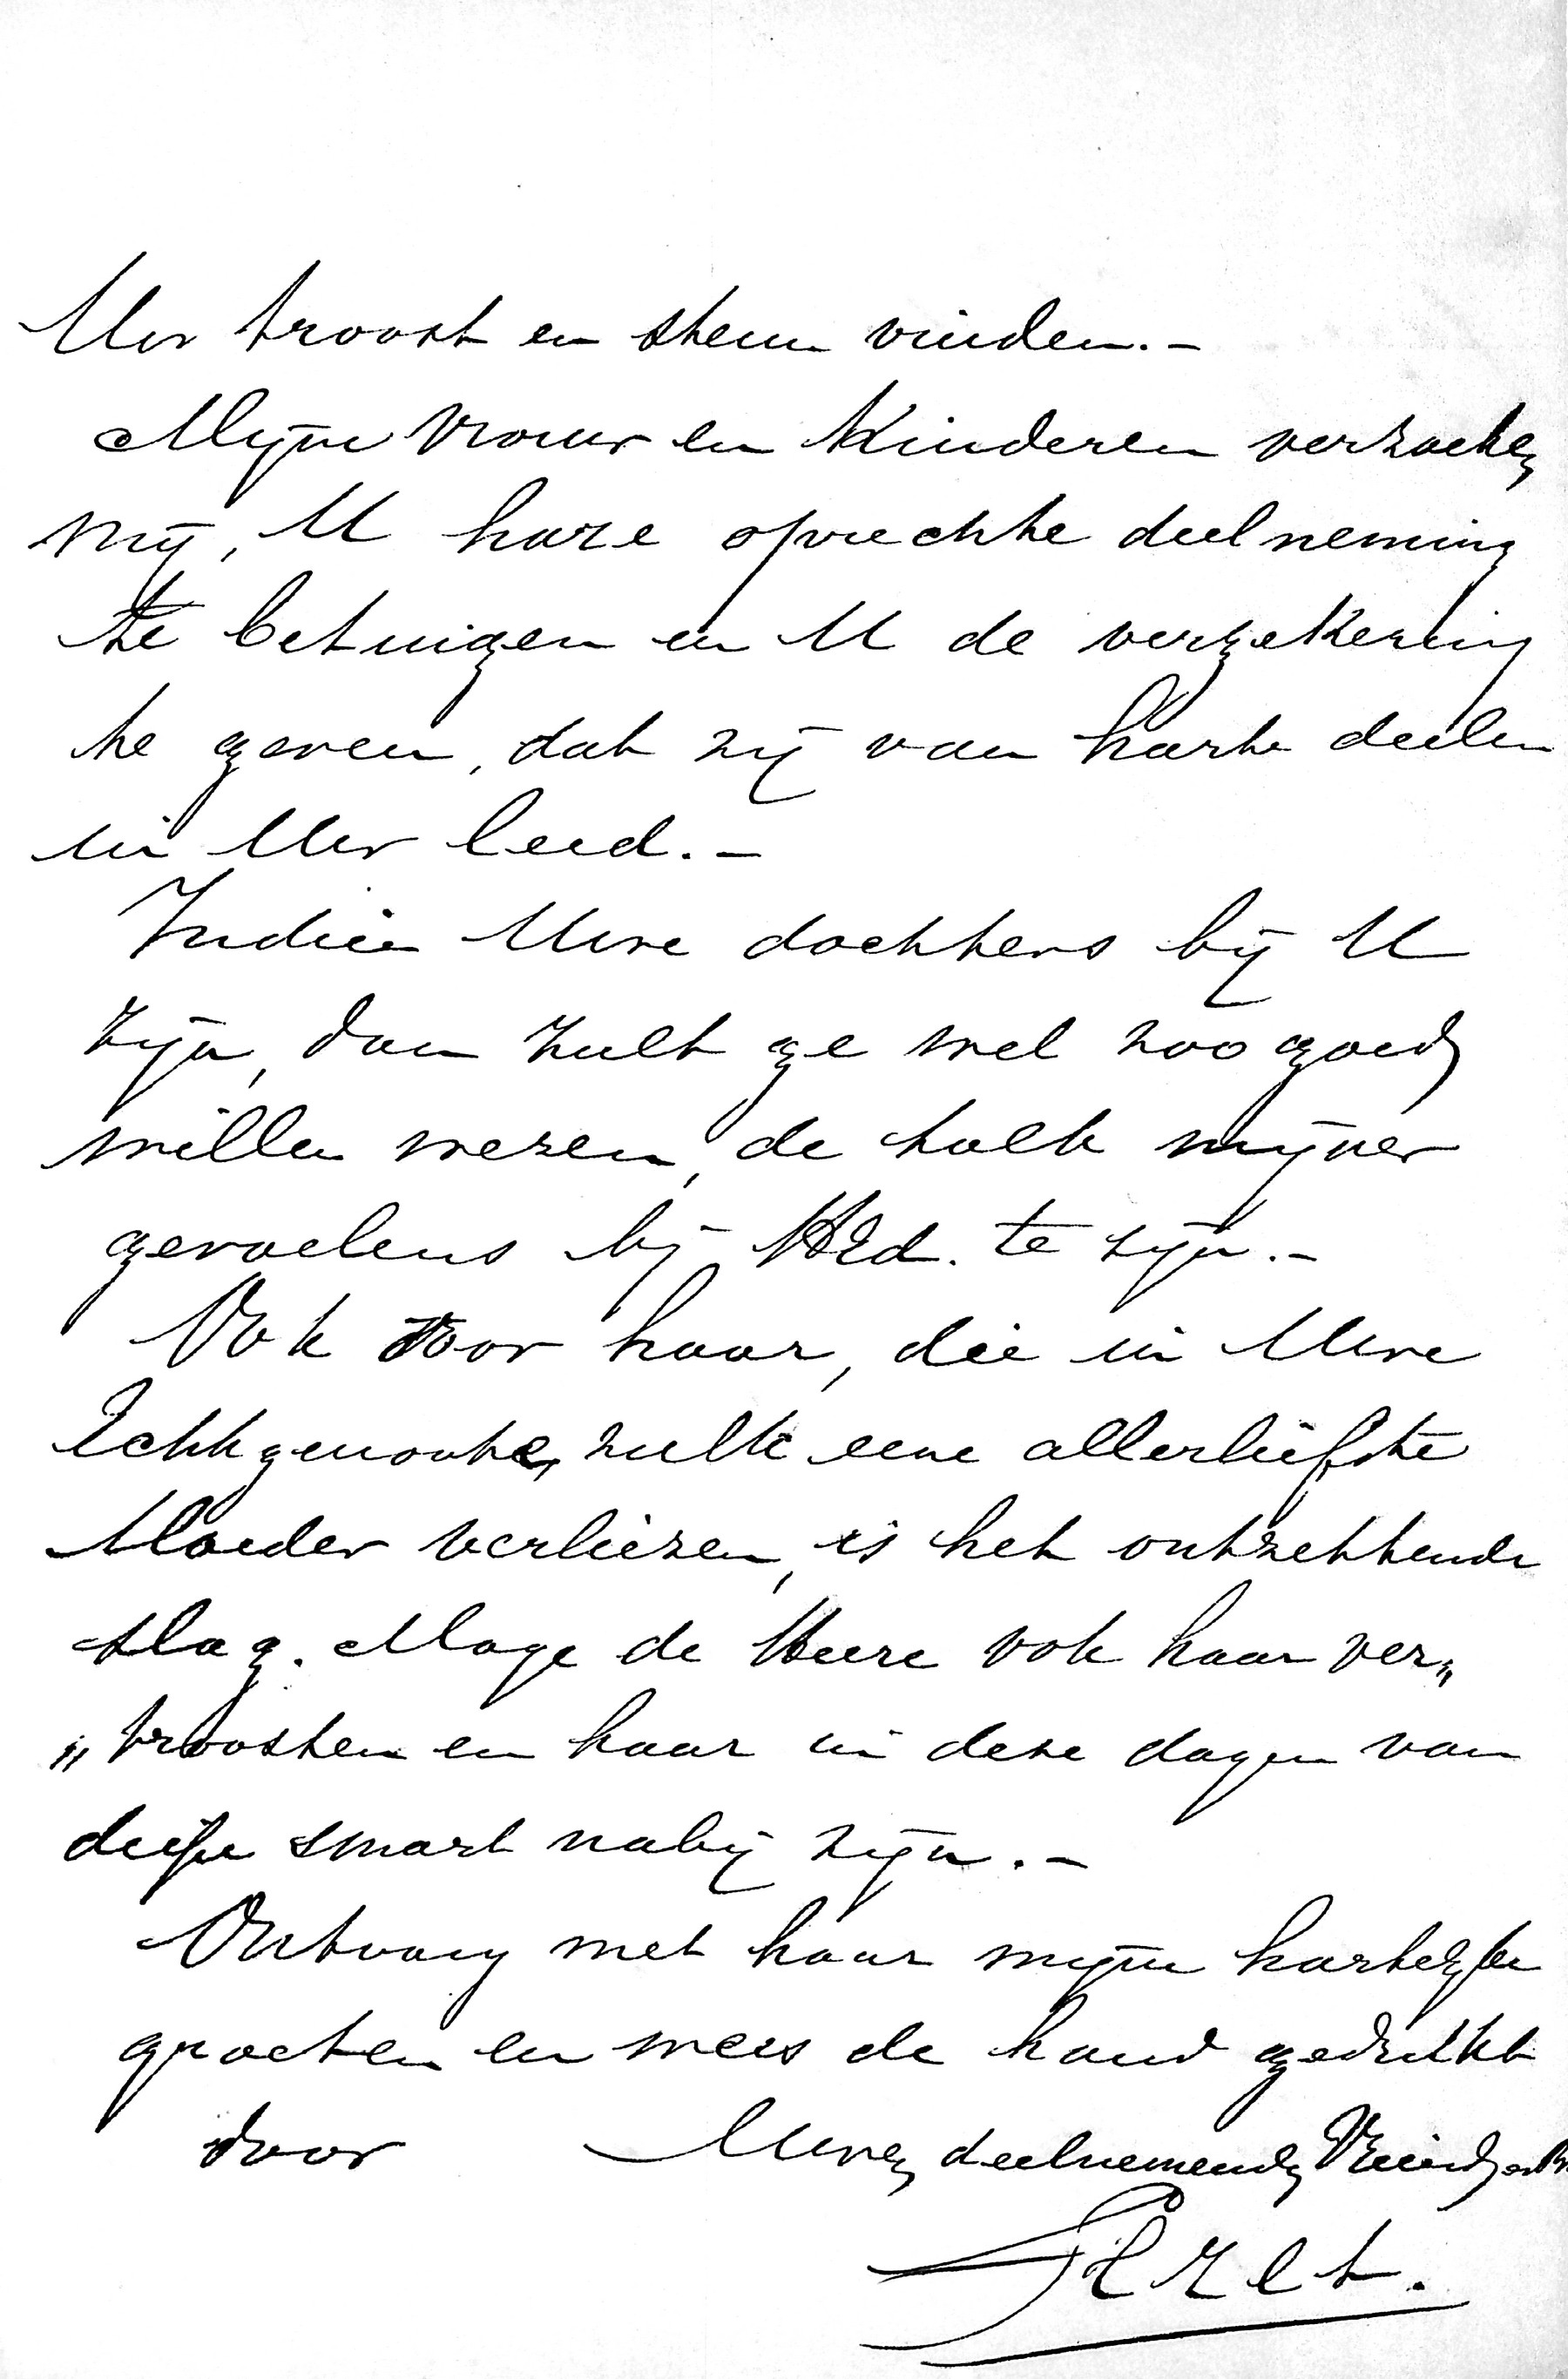 Uw troost en steun vinden.–
Mijne Vrouw en Kinderen verzoeken
mij, U hare oprechte deelneming
te betuigen en U de verzekering
te geven, dat zij van harte deelen
in Uw leed.–
Indien Uwe dochters bij U
zijn, dan zult ge wel zoo goed
willen wezen, de tolk mijner
gevoelens bij HEd. te zijn.–
Ook voor haar, die in Uwe
Echtgenoote, zulk eene allerliefste
Moeder verliezen, is het ontzettende
slag. Moge de Heere ook haar ver„
„troosten en haar in deze dagen van
diepe smart nabij zijn.–
Ontvang met haar mijne hartelijke
groeten en wees de hand gedrukt
door Uwen deelnemenden Vriend en